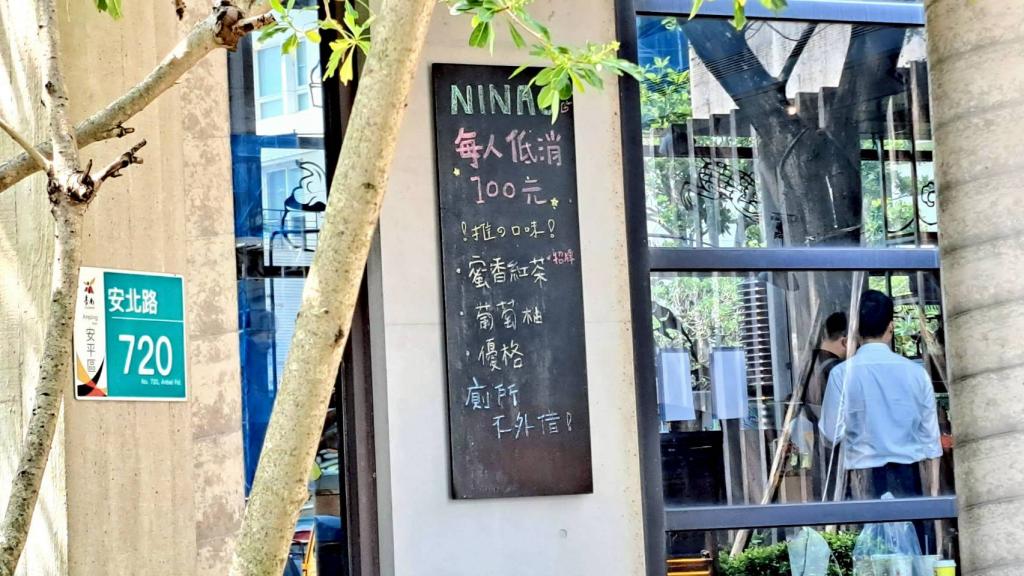 安北路
720
No. 720, Anbei Rd.
安平區
NINAO
每人低消
100元
!推の口味!
·蜜香紅茶 招牌
·葡萄柚
·優格
廁所
不外借!